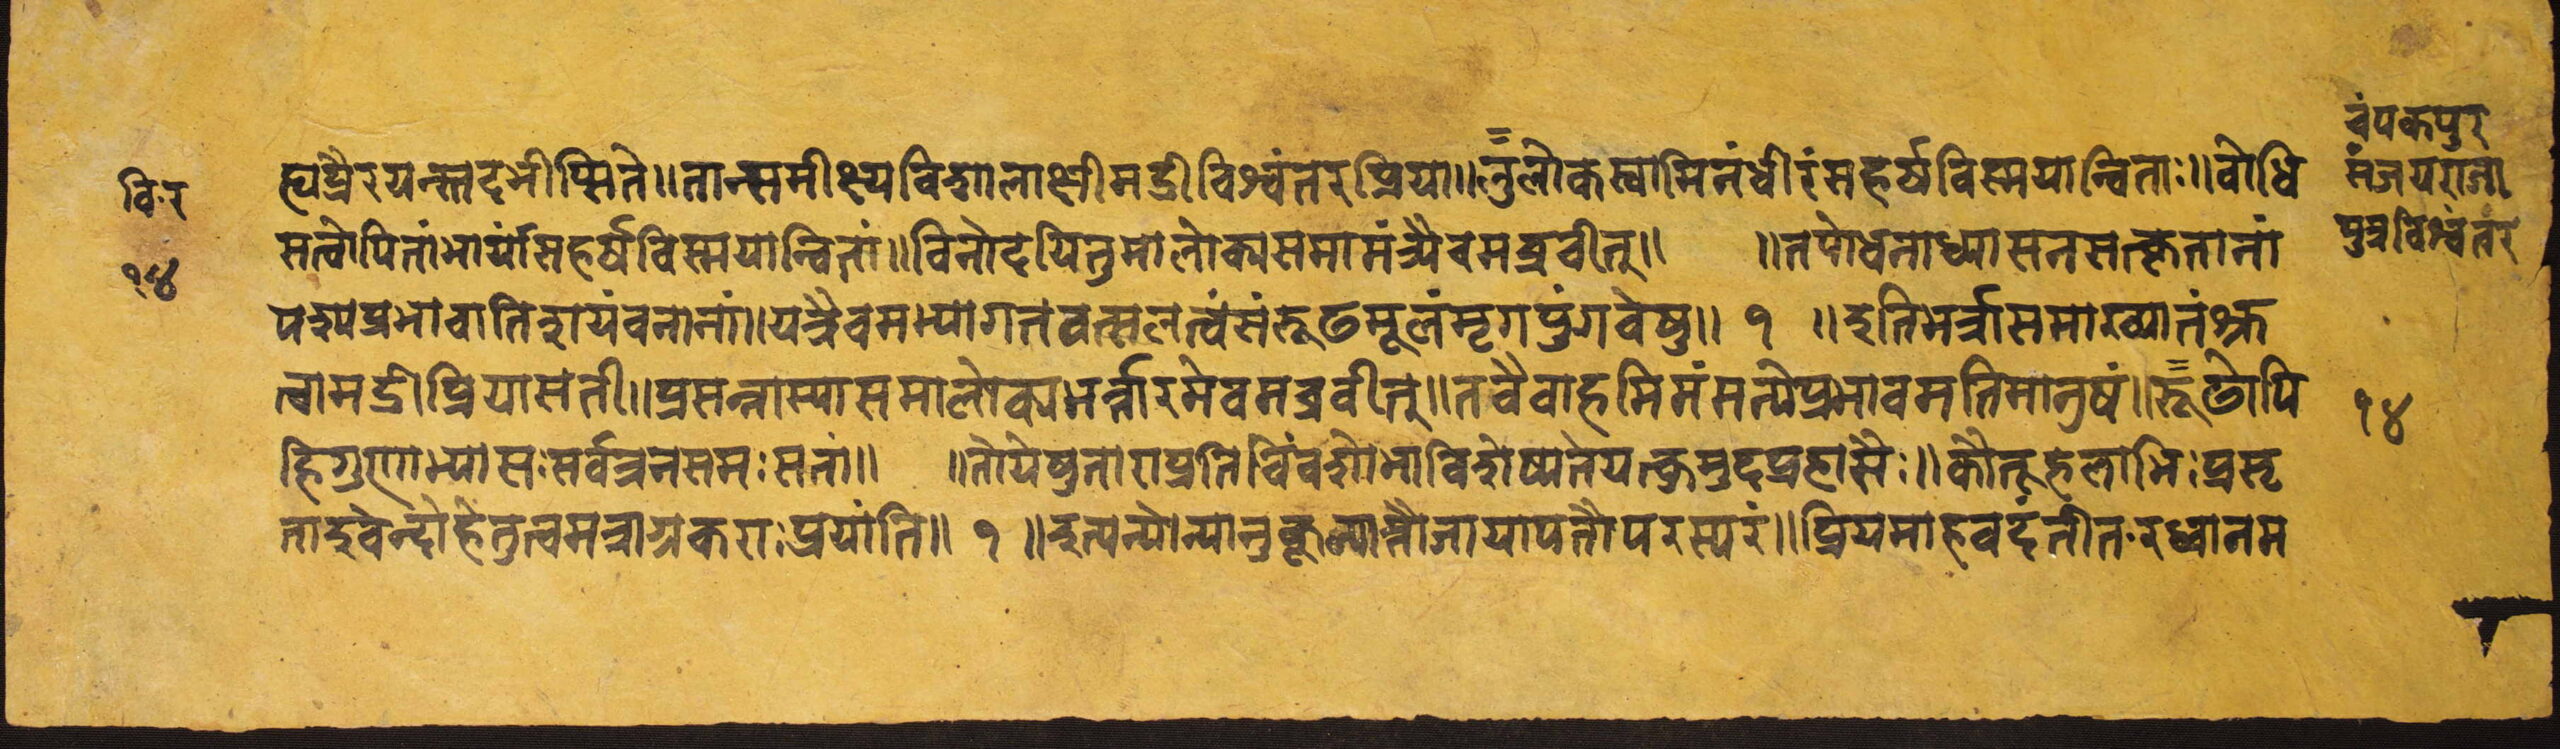 चंपकपुर
संजयराजा
पुत्रविश्वंतर
वि॰र
१४
ह्यप्रैरयन्स्तदभीप्सिते॥तान्समीक्ष्यविशालाक्षीमद्रीविश्वंतरप्रिया॥नृलोकस्वामिनंधीरंसहर्षविस्मयान्विताः॥बोधि
सत्वोपितांभार्यांसहर्षविस्मयान्वितां॥विनोदयितुमालोक्यसमामंत्र्यैवमब्रवीत्॥ ॥तपोधनाध्यासनसत्कृतानां
पश्यप्रभावातिशयंवनानां॥यत्रैवमभ्यागतवत्सलत्वंसंरूढमूलंमृगपुंगवेषु॥ १ ॥इतिभर्त्रासमाख्यातंश्रु
त्वामद्रीप्रियासती॥प्रसन्नास्यासमालोक्यभर्त्तारमेवमब्रवीत्॥तवैवाहमिमंमन्येप्रभावमतिमानुषं॥रूढोपि
हिगुणाभ्यासःसर्वत्रनसमःसतां॥ ॥तोयेषुताराप्रतिबिंबशोभाविशेष्यतेयत्कुमुदप्रहासैः॥कौतूहलाभिःप्रसृ
ताइवेन्दोहेतुत्वमत्राग्रकराःप्रयांति॥ १ ॥इत्यन्योन्यानुकूल्यात्तौजायापतौपरस्परं॥प्रियमाहवदंतीत॰रध्वानम
१४